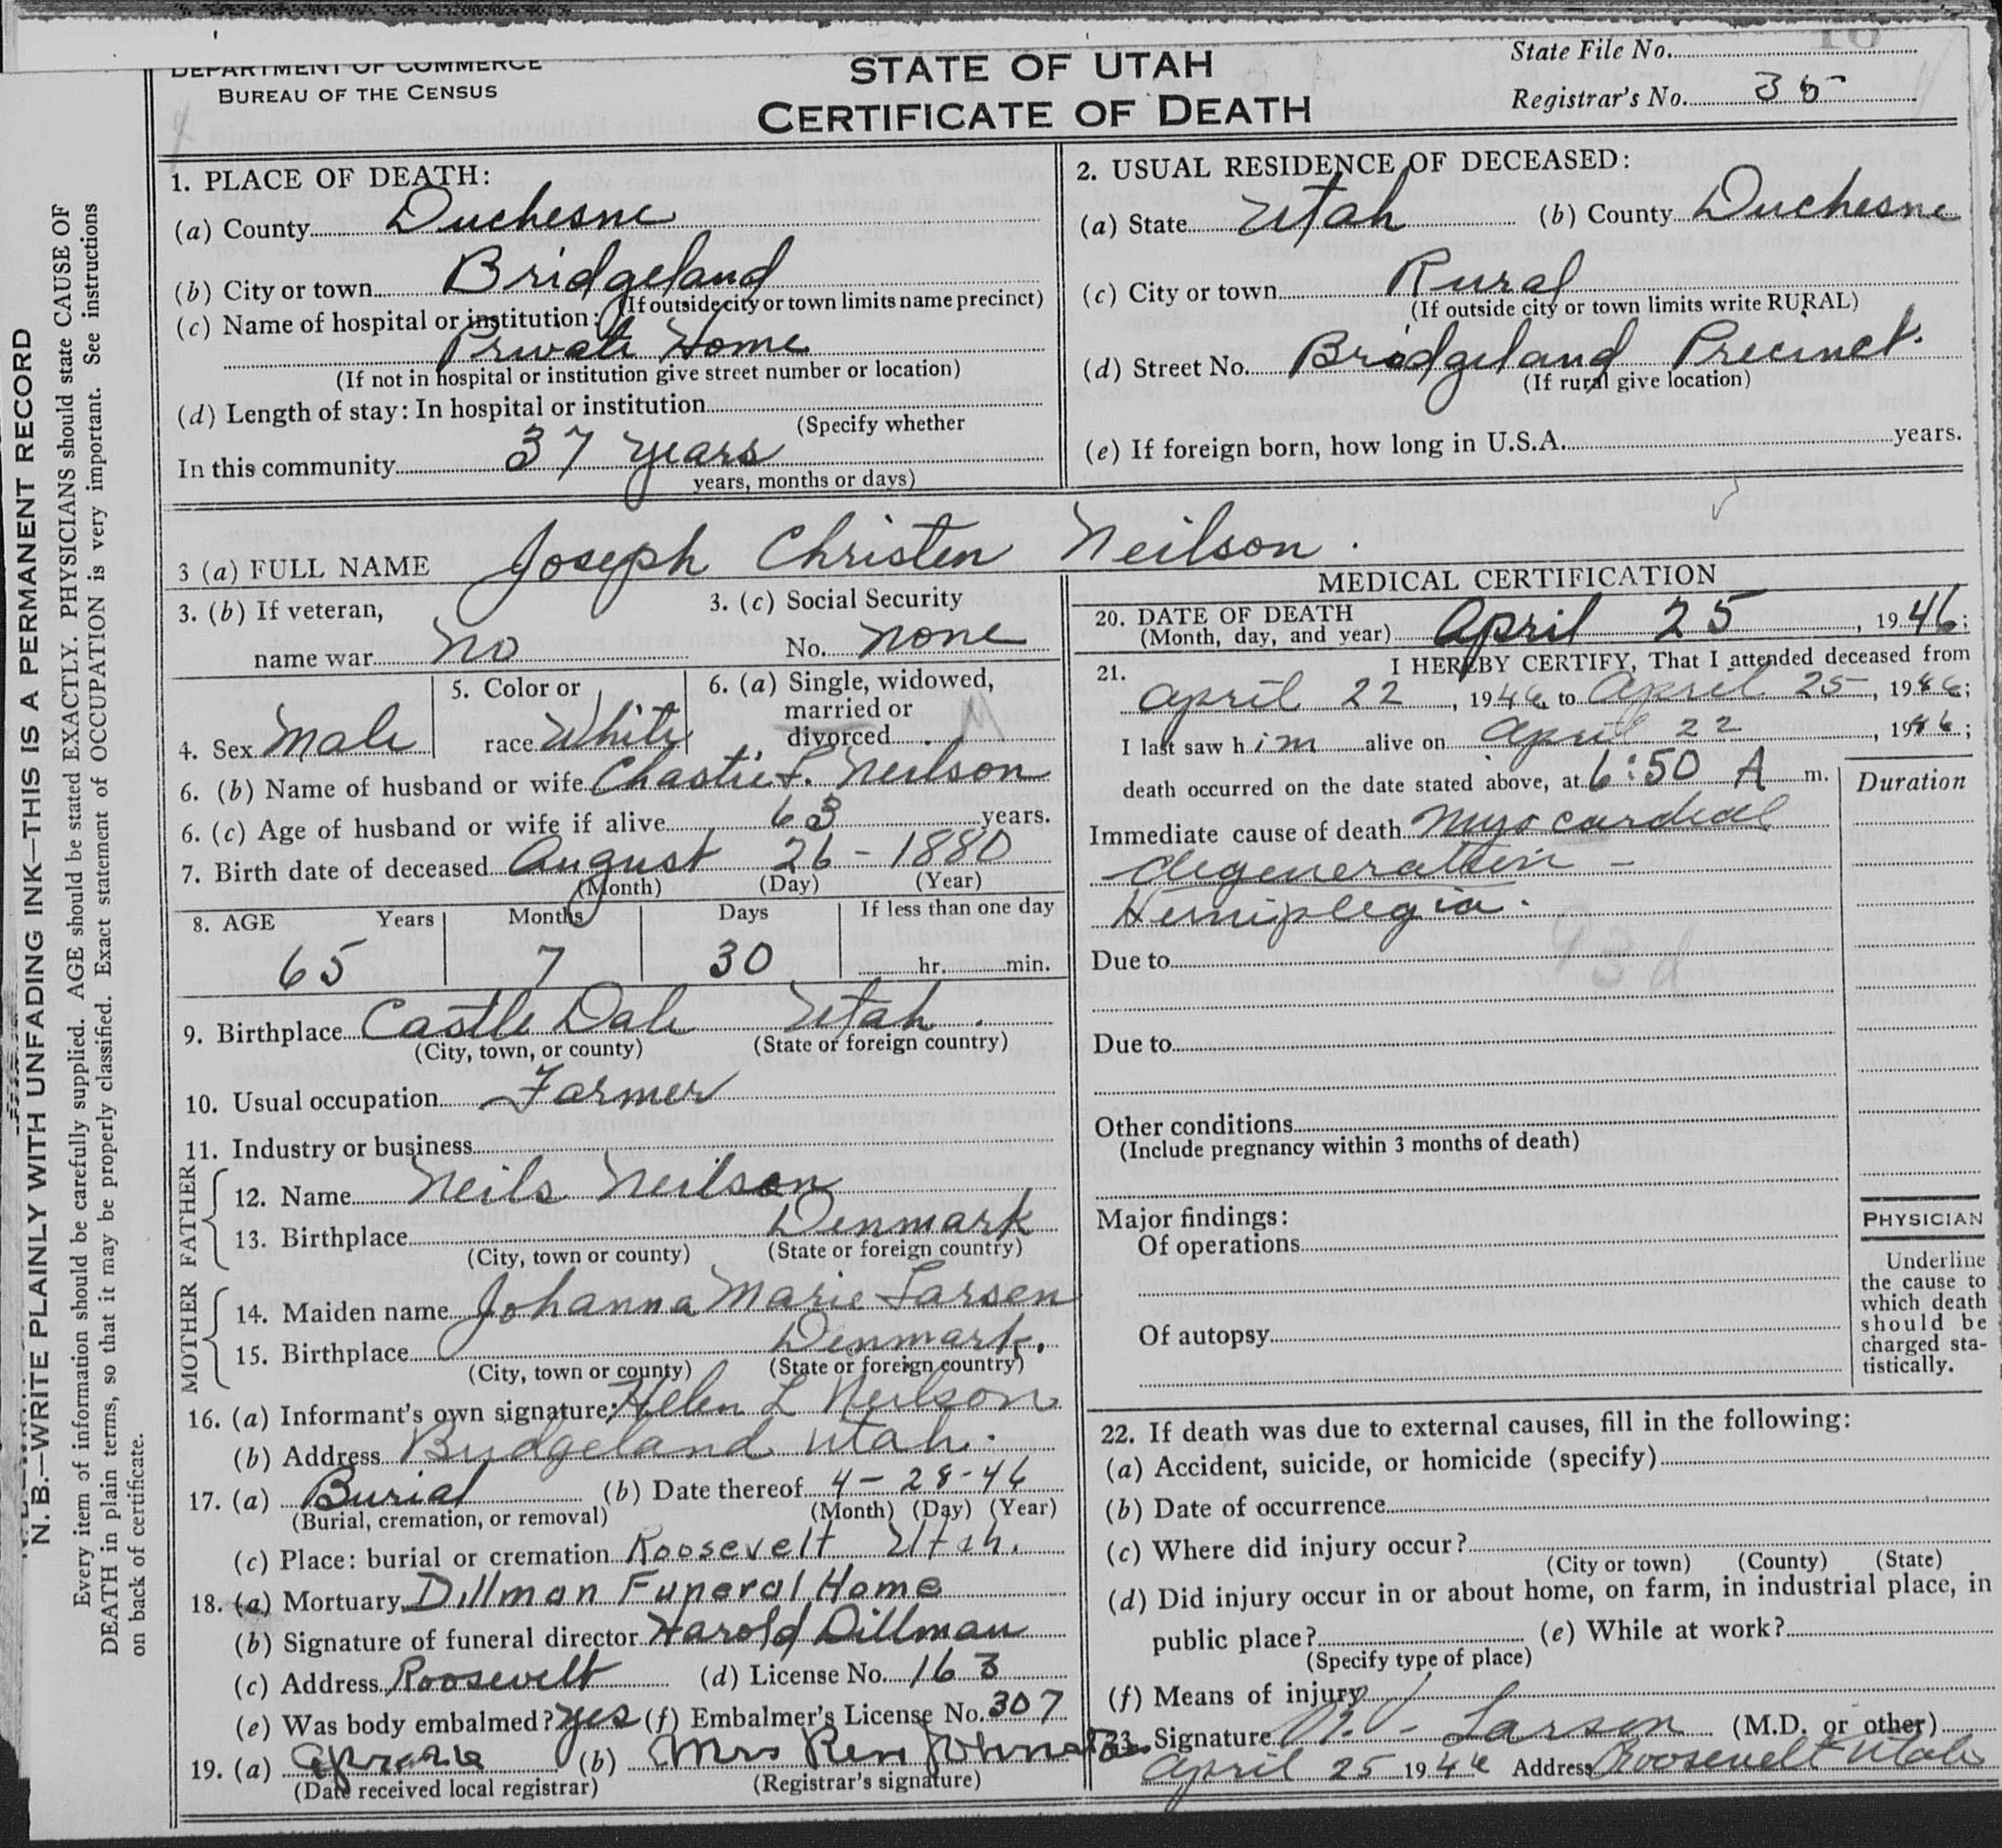 DEPARTMENT OF COMMERCE
BUREAU OF THE CENSUS
STATE OF UTAH
CERTIFICATE OF DEATH
State File No.
Registrar's No. 35
N. B.—WRITE PLAINLY WITH UNFADING INK—THIS IS A PERMANENT RECORD
Every item of information should be carefully supplied. AGE should be stated EXACTLY. PHYSICIANS should state CAUSE OF
DEATH in plain terms, so that it may be properly classified. Exact statement of OCCUPATION is very important. See instructions
on back of certificate.
1. PLACE OF DEATH:
(a) County Duchesne
(b) City or town Bridgeland
(If outside city or town limits name precinct)
(c) Name of hospital or institution:
Private Home
(If not in hospital or institution give street number or location)
(d) Length of stay: In hospital or institution
(Specify whether
In this community 37 years
years, months or days)
2. USUAL RESIDENCE OF DECEASED:
(a) State Utah (b) County Duchesne
(c) City or town Rural
(If outside city or town limits write RURAL)
(d) Street No. Bridgeland Precinct.
(If rural give location)
(e) If foreign born, how long in U.S.A. years.
3 (a) FULL NAME Joseph Christen Neilson.
3. (b) If veteran, 3. (c) Social Security
name war no No. none
4. Sex Male 5. Color or race White 6. (a) Single, widowed, married or divorced M
6. (b) Name of husband or wife Chastie L. Neilson
6. (c) Age of husband or wife if alive 63 years.
7. Birth date of deceased August 26 - 1880
(Month) (Day) (Year)
8. AGE Years Months Days If less than one day
65 7 30 hr. min.
9. Birthplace Castle Dale Utah.
(City, town, or county) (State or foreign country)
10. Usual occupation Farmer
11. Industry or business
FATHER
12. Name Neils Neilson
13. Birthplace Denmark
(City, town or county) (State or foreign country)
MOTHER
14. Maiden name Johanna Marie Larsen
15. Birthplace Denmark.
(City, town or county) (State or foreign country)
16. (a) Informant's own signature: Helen L Neilson
(b) Address Bridgeland Utah.
17. (a) Burial (b) Date thereof 4 - 28-46
(Burial, cremation, or removal) (Month) (Day) (Year)
(c) Place: burial or cremation Roosevelt Utah.
18. (a) Mortuary Dillman Funeral Home
(b) Signature of funeral director Harold Dillman
(c) Address Roosevelt (d) License No. 163
(e) Was body embalmed? yes (f) Embalmer's License No. 307
19. (a) (b) Mrs
(Date received local registrar) (Registrar's signature)
MEDICAL CERTIFICATION
20. DATE OF DEATH
(Month, day, and year) April 25, 1946;
21. I HEREBY CERTIFY, That I attended deceased from
April 22, 1946, to April 25, 1946;
I last saw him alive on April 22, 1946;
death occurred on the date stated above, at 6:50 A m.
Duration
Immediate cause of death Myocardial
degeneration -
Hemiplegia.
93d
Due to
Due to
Other conditions
(Include pregnancy within 3 months of death)
Major findings:
Of operations
Of autopsy
PHYSICIAN
Underline
the cause to
which death
should be
charged sta-
tistically.
22. If death was due to external causes, fill in the following:
(a) Accident, suicide, or homicide (specify)
(b) Date of occurrence
(c) Where did injury occur?
(City or town) (County) (State)
(d) Did injury occur in or about home, on farm, in industrial place, in
public place? (e) While at work?
(Specify type of place)
(f) Means of injury
23. Signature Larson (M.D. or other)
April 25 1946 Address Roosevelt Utah